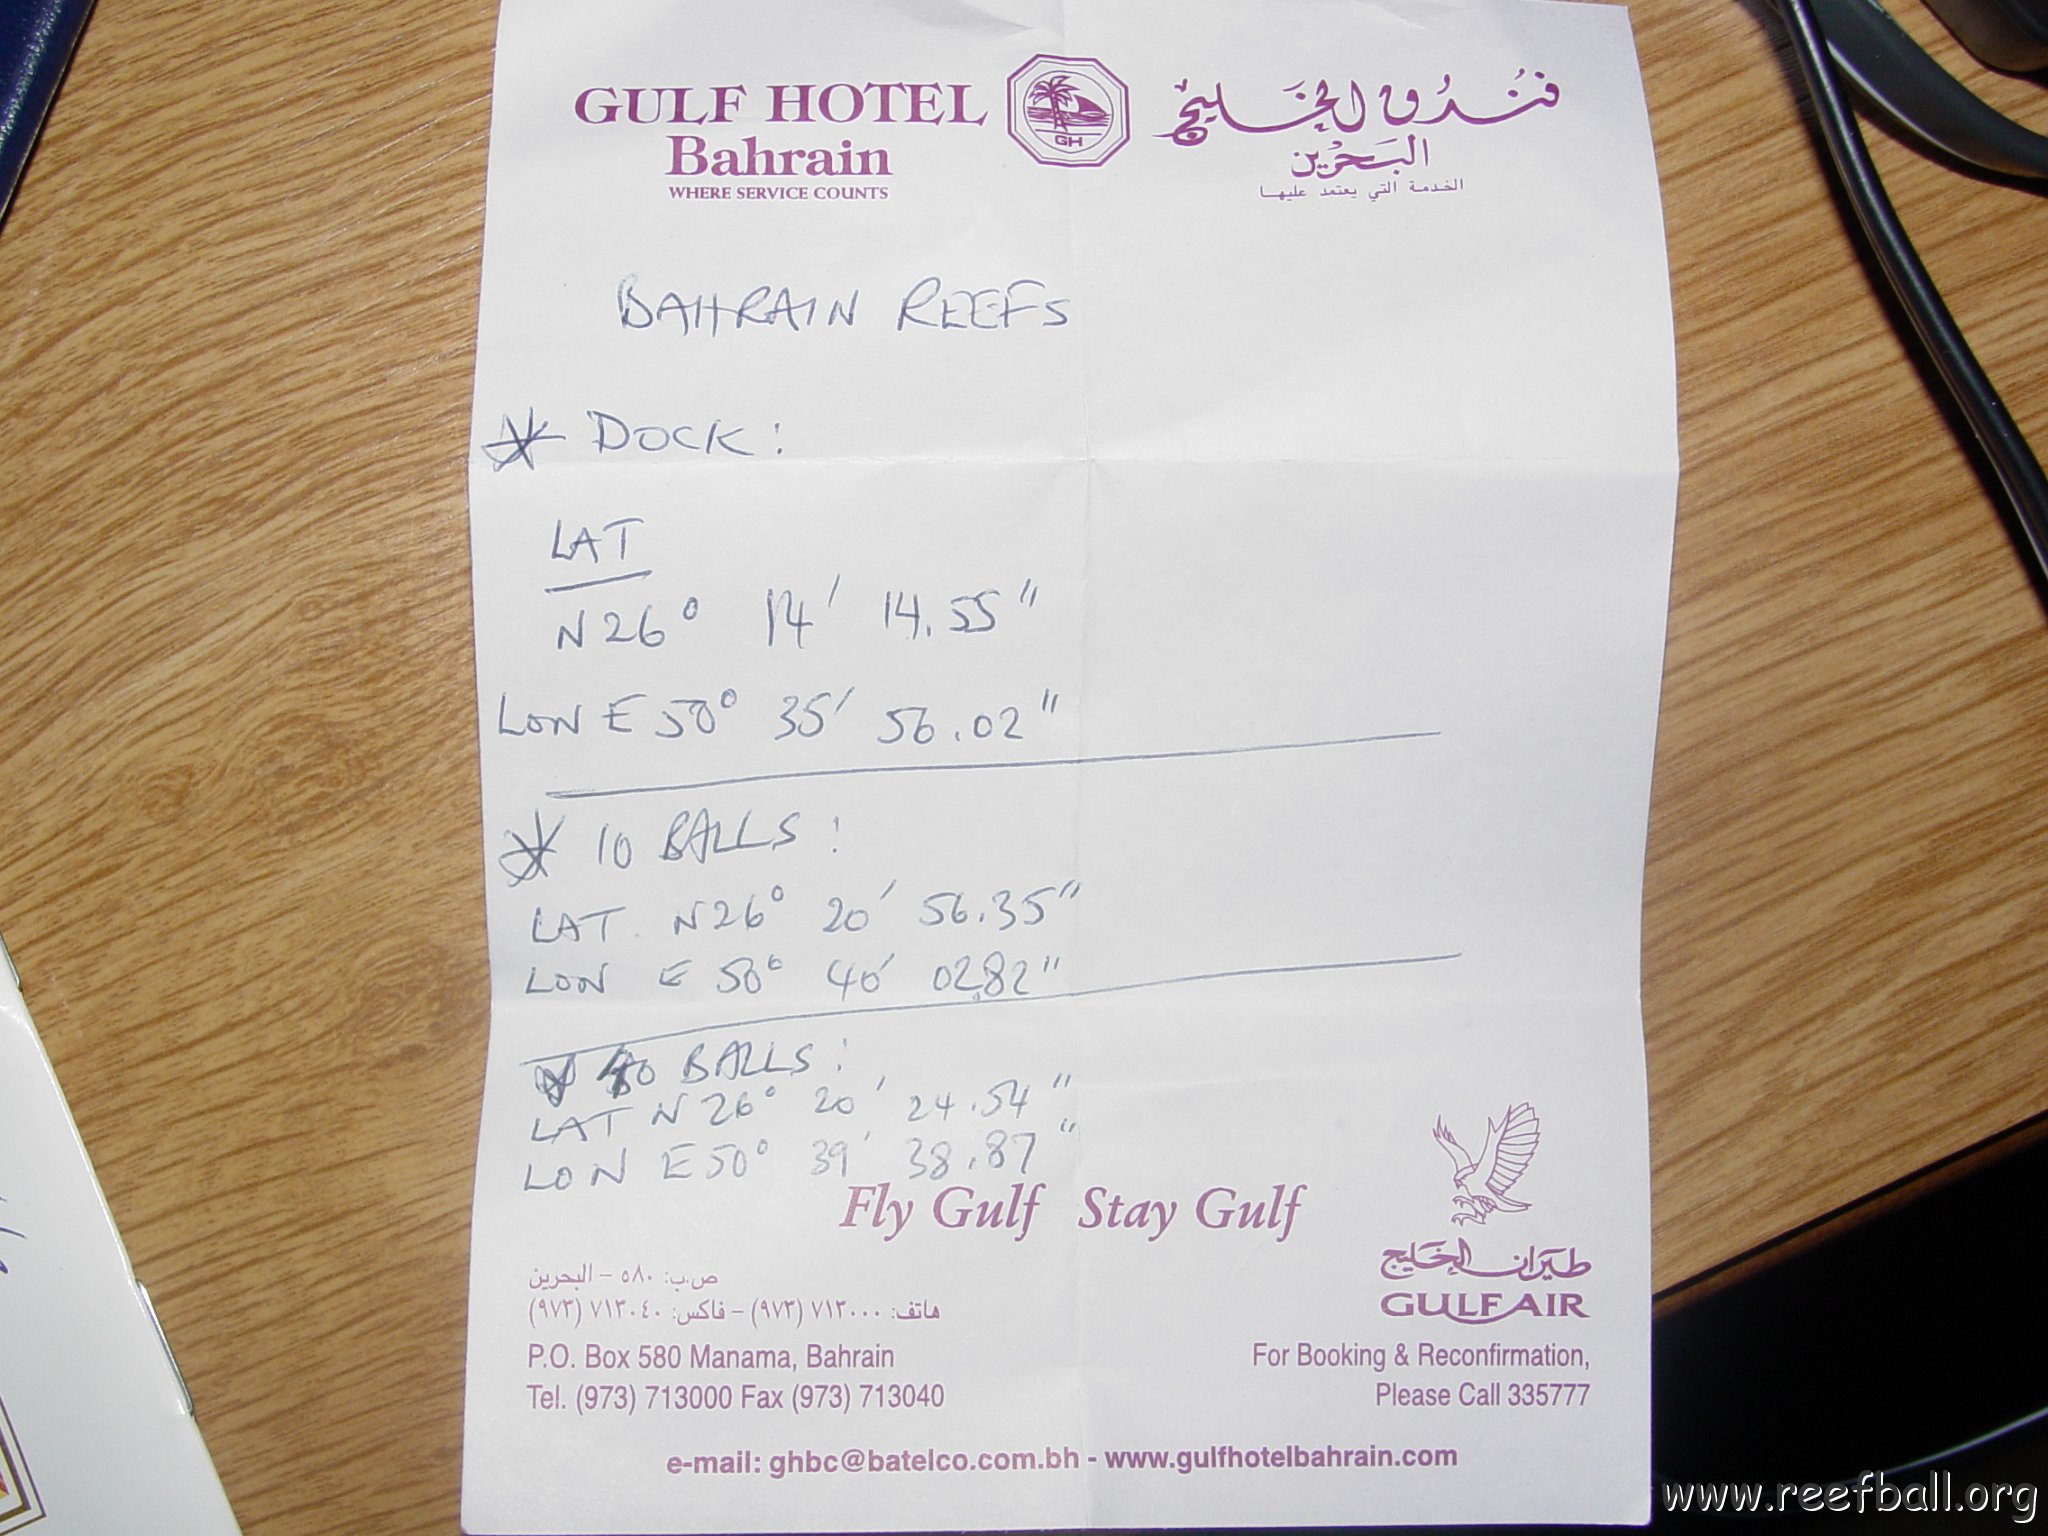 GULF HOTEL
Bahrain
WHERE SERVICE COUNTS
GH
فندق الخليج
البحرين
الخدمة التي يعتمد عليها
BAHRAIN REEFS
DOCK:
LAT
N 26° 14' 14.55"
LON E 50° 35' 56.02"
10 BALLS:
LAT. N 26° 20' 56.35"
LON E 50° 40' 02.82"
BALLS:
LAT N 26° 20' 24.54"
LON E 50° 39' 38.87"
Fly Gulf Stay Gulf
طيران الخليج
GULF AIR
ص.ب: ٥٨٠ – البحرين
هاتف: ٧١٣٠٠٠ (٩٧٣) – فاكس: ٧١٣٠٤٠ (٩٧٣)
P.O. Box 580 Manama, Bahrain
Tel. (973) 713000 Fax (973) 713040
For Booking & Reconfirmation,
Please Call 335777
e-mail: ghbc@batelco.com.bh - www.gulfhotelbahrain.com
www.reefball.org